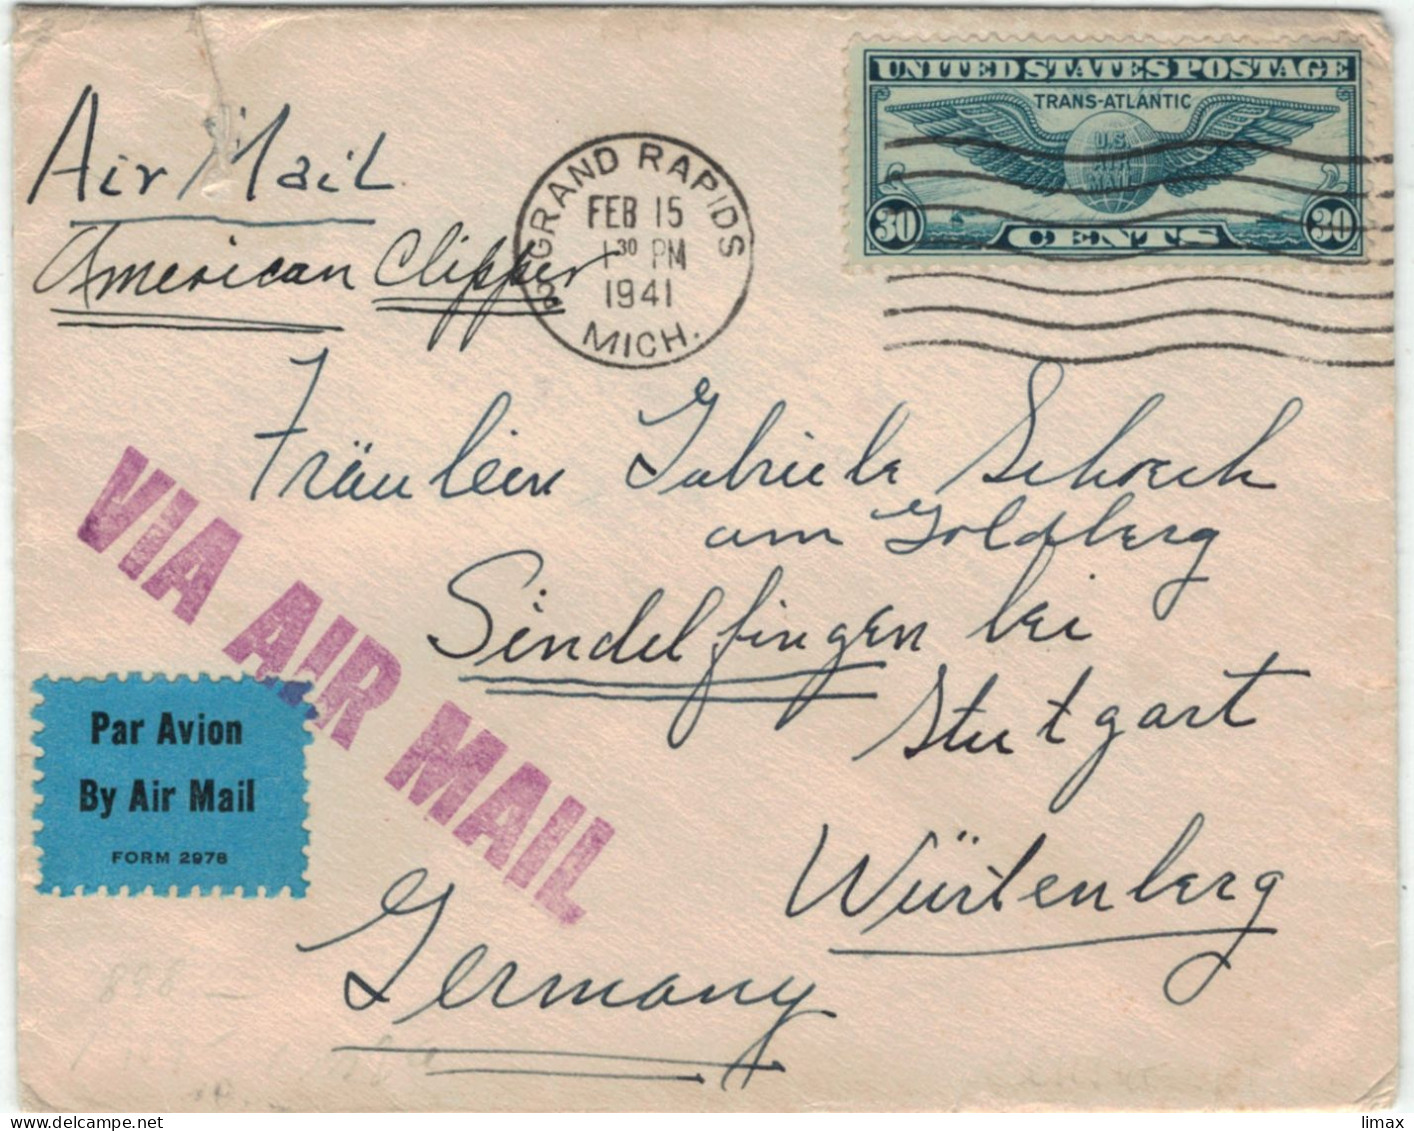 Air Mail
American Clipper
GRAND RAPIDS
FEB 15
1 30 PM
1941
MICH.
UNITED STATES POSTAGE
TRANS-ATLANTIC
U.S.
AIR
MAIL
30 CENTS 30
Fräulein Gabriele Schoeck
am Goldberg
Sindelfingen bei
Stuttgart
Würtenberg
Germany
VIA AIR MAIL
Par Avion
By Air Mail
FORM 2978
898
limax